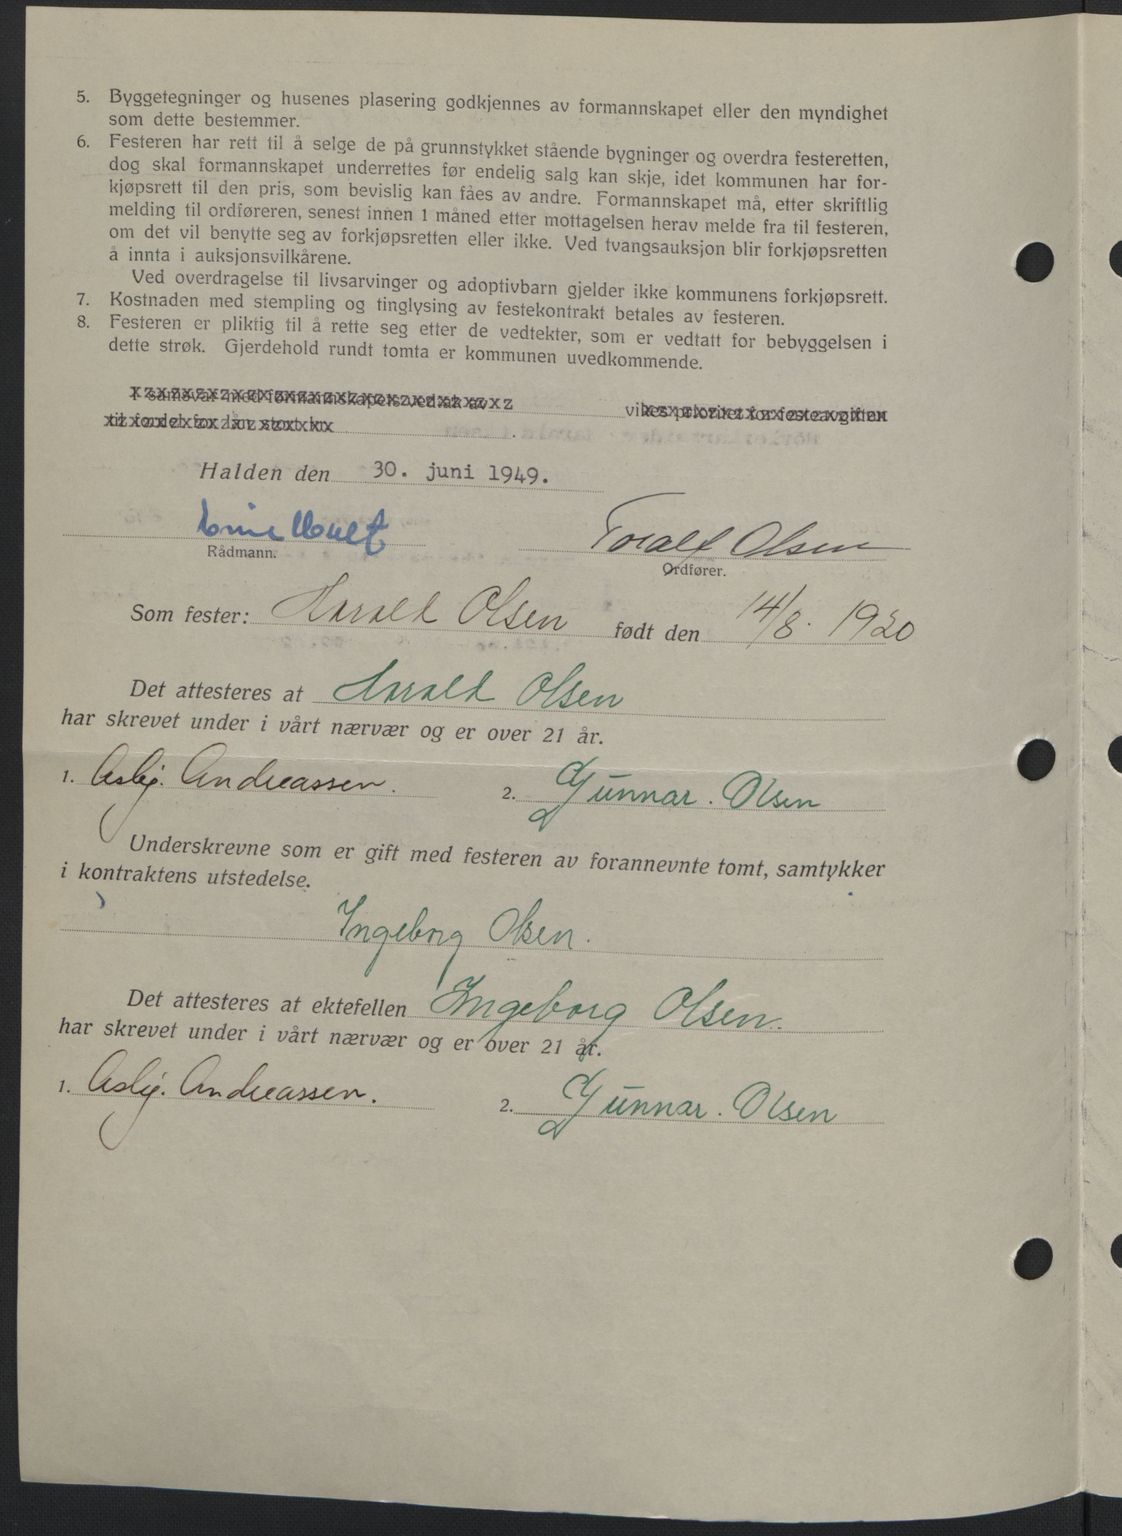 5. Byggetegninger og husenes plasering godkjennes av formannskapet eller den myndighet
som dette bestemmer.
6. Festeren har rett til å selge de på grunnstykket stående bygninger og overdra festeretten,
dog skal formannskapet underrettes før endelig salg kan skje, idet kommunen har for-
kjøpsrett til den pris, som bevislig kan fåes av andre. Formannskapet må, etter skriftlig
melding til ordføreren, senest innen 1 måned etter mottagelsen herav melde fra til festeren,
om det vil benytte seg av forkjøpsretten eller ikke. Ved tvangsauksjon blir forkjøpsretten
å innta i auksjonsvilkårene.
Ved overdragelse til livsarvinger og adoptivbarn gjelder ikke kommunens forkjøpsrett.
7. Kostnaden med stempling og tinglysing av festekontrakt betales av festeren.
8. Festeren er pliktig til å rette seg etter de vedtekter, som er vedtatt for bebyggelsen i
dette strøk. Gjerdehold rundt tomta er kommunen uvedkommende.
I samsvar med formannskapets vedtak av vikes prioritet for festeavgiften
til fordel for lån stort kr.
Halden den 30. juni 1949.
Toralf Olsen
Rådmann. Ordfører.
Som fester: Harald Olsen født den 14/8. 1920
Det attesteres at Harald Olsen
har skrevet under i vårt nærvær og er over 21 år.
1. Aslg. Andreassen. 2. Gunnar. Olsen
Underskrevne som er gift med festeren av forannevnte tomt, samtykker
i kontraktens utstedelse.
Ingeborg Olsen.
Det attesteres at ektefellen Ingeborg Olsen.
har skrevet under i vårt nærvær og er over 21 år.
1. Aslg. Andreassen. 2. Gunnar. Olsen